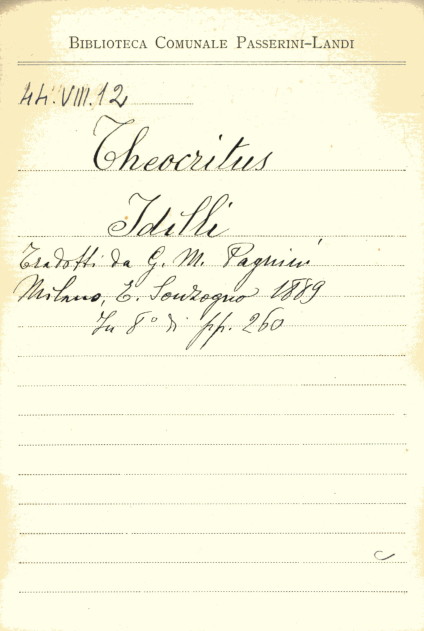 BIBLIOTECA COMUNALE PASSERINI-LANDI
44.VIII.12
Theocritus
Idilli
Tradotti da G. M. Pagnini
Milano, E. Sonzogno 1889
In 8° di pp. 260